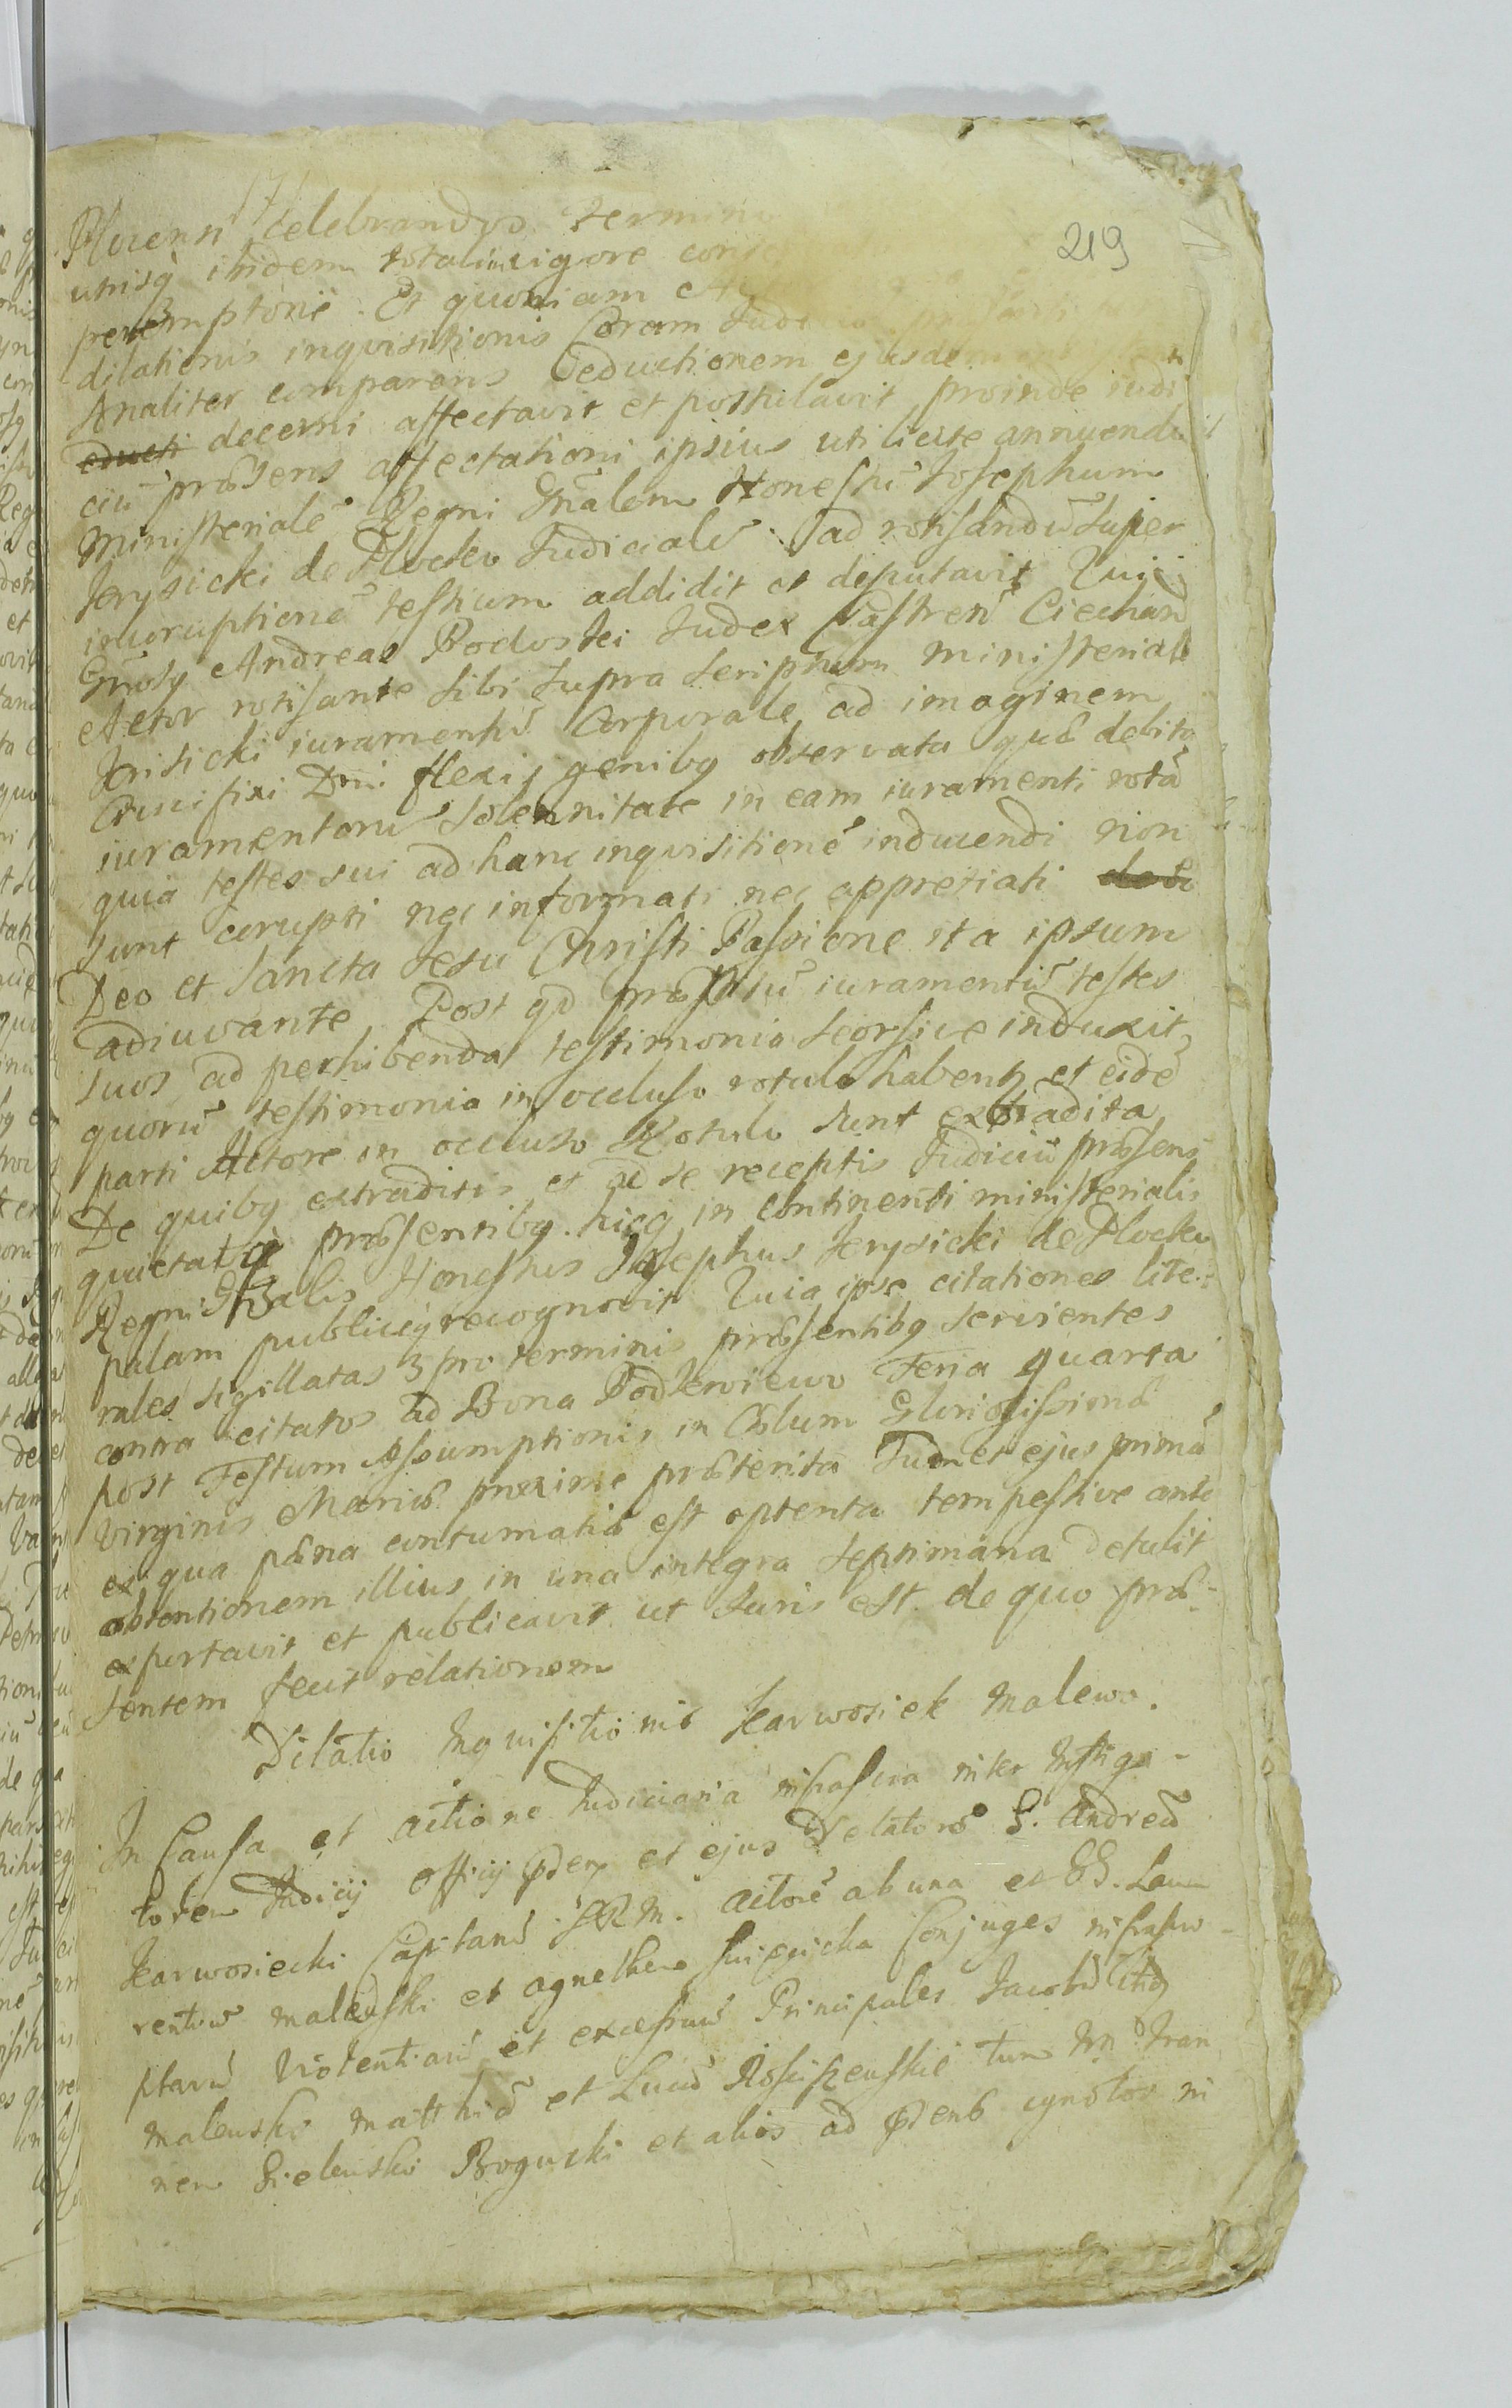 219
Plocenñ celebrandos termin
utrisq̃ ibidem totalim rigore cons
peremptorie. Et quoniam
dilationis inqvisitionis Coram Judi
Analiter comparens deductionem ejusdem
educti decerni affectavit et postulavit proinde iudi
ciũ præsens affectationi ipsius uti licite annuendu
Ministerialẽ Regni Gñalem Honestũ Josephum
Jerysicki de Plocko Judicialẽ ad rotisandũ super
incoruptionẽ testium addidit et deputavit Quiq
Gñosq Andreas Bodoski Judex Castreñ Ciechan
Actor rotisante sibi supra scriptum ministeriale
Krisicki iuramentũ Corporale ad imaginem
Crucifixi Dni flexis genibq observata quæ debita
iuramentorũ solennitate in eam iuramenti rotã
quia testes sui ad hanc inqvisitionẽ inducendi non
sunt corupti nec informati nec appretiati
Deo et Sancta Jesu Christi Passione ita ipsum
adiuvante. Post qd præstitũ iuramentũ testes
suos ad perhibenda testimonia seorsive induxit
quorũ testimonia in occluso rotulo habentr et eidẽ
parti Actoreæ in occluso Rotulo sunt extradita
De quibq extraditis et ad se receptis Judiciũ præsens
quietat præsentibq. hicq in continenti ministerialis
Regni Gñalis Honestus Josephus Jerysicki de Plocko
palam publiceq recognovit Quia ipse citationes lite:
rales sigillatas 3 pro terminis præsentibq servientes
contra citatos ad Bona Podlewiewo Feria quarta
post Festum Assumptionis in Cœlum Gloriosissimæ
Virginis Mariæ proxime præterita Tum et ejus primã
ex qua pœna contumatiæ est optenta tempestive ante
obtentionem illius in una integra septimana detulit
exportavit et publicavit ut Juris est. de quo præ-
sentem fecit relationem
Dilatio Inquisitionis Karwosiek Malewo.
In Causa et actione Judiciaria infrascra inter Instiga-
torem Judicij Officij et ejus Delatorẽ G. Andreã
Karwosiecki Capitaneũ SRM. actorẽ ab una et GG. Lau
rentiũ Malewski et Agnethem Conjuges infrascri-
ptarũ violentiarũ et excessuũ Principales Jacobũ
Malewski Matthiã et Lucã tum
nem Bielewski Bogucki et alios ad ignotos in